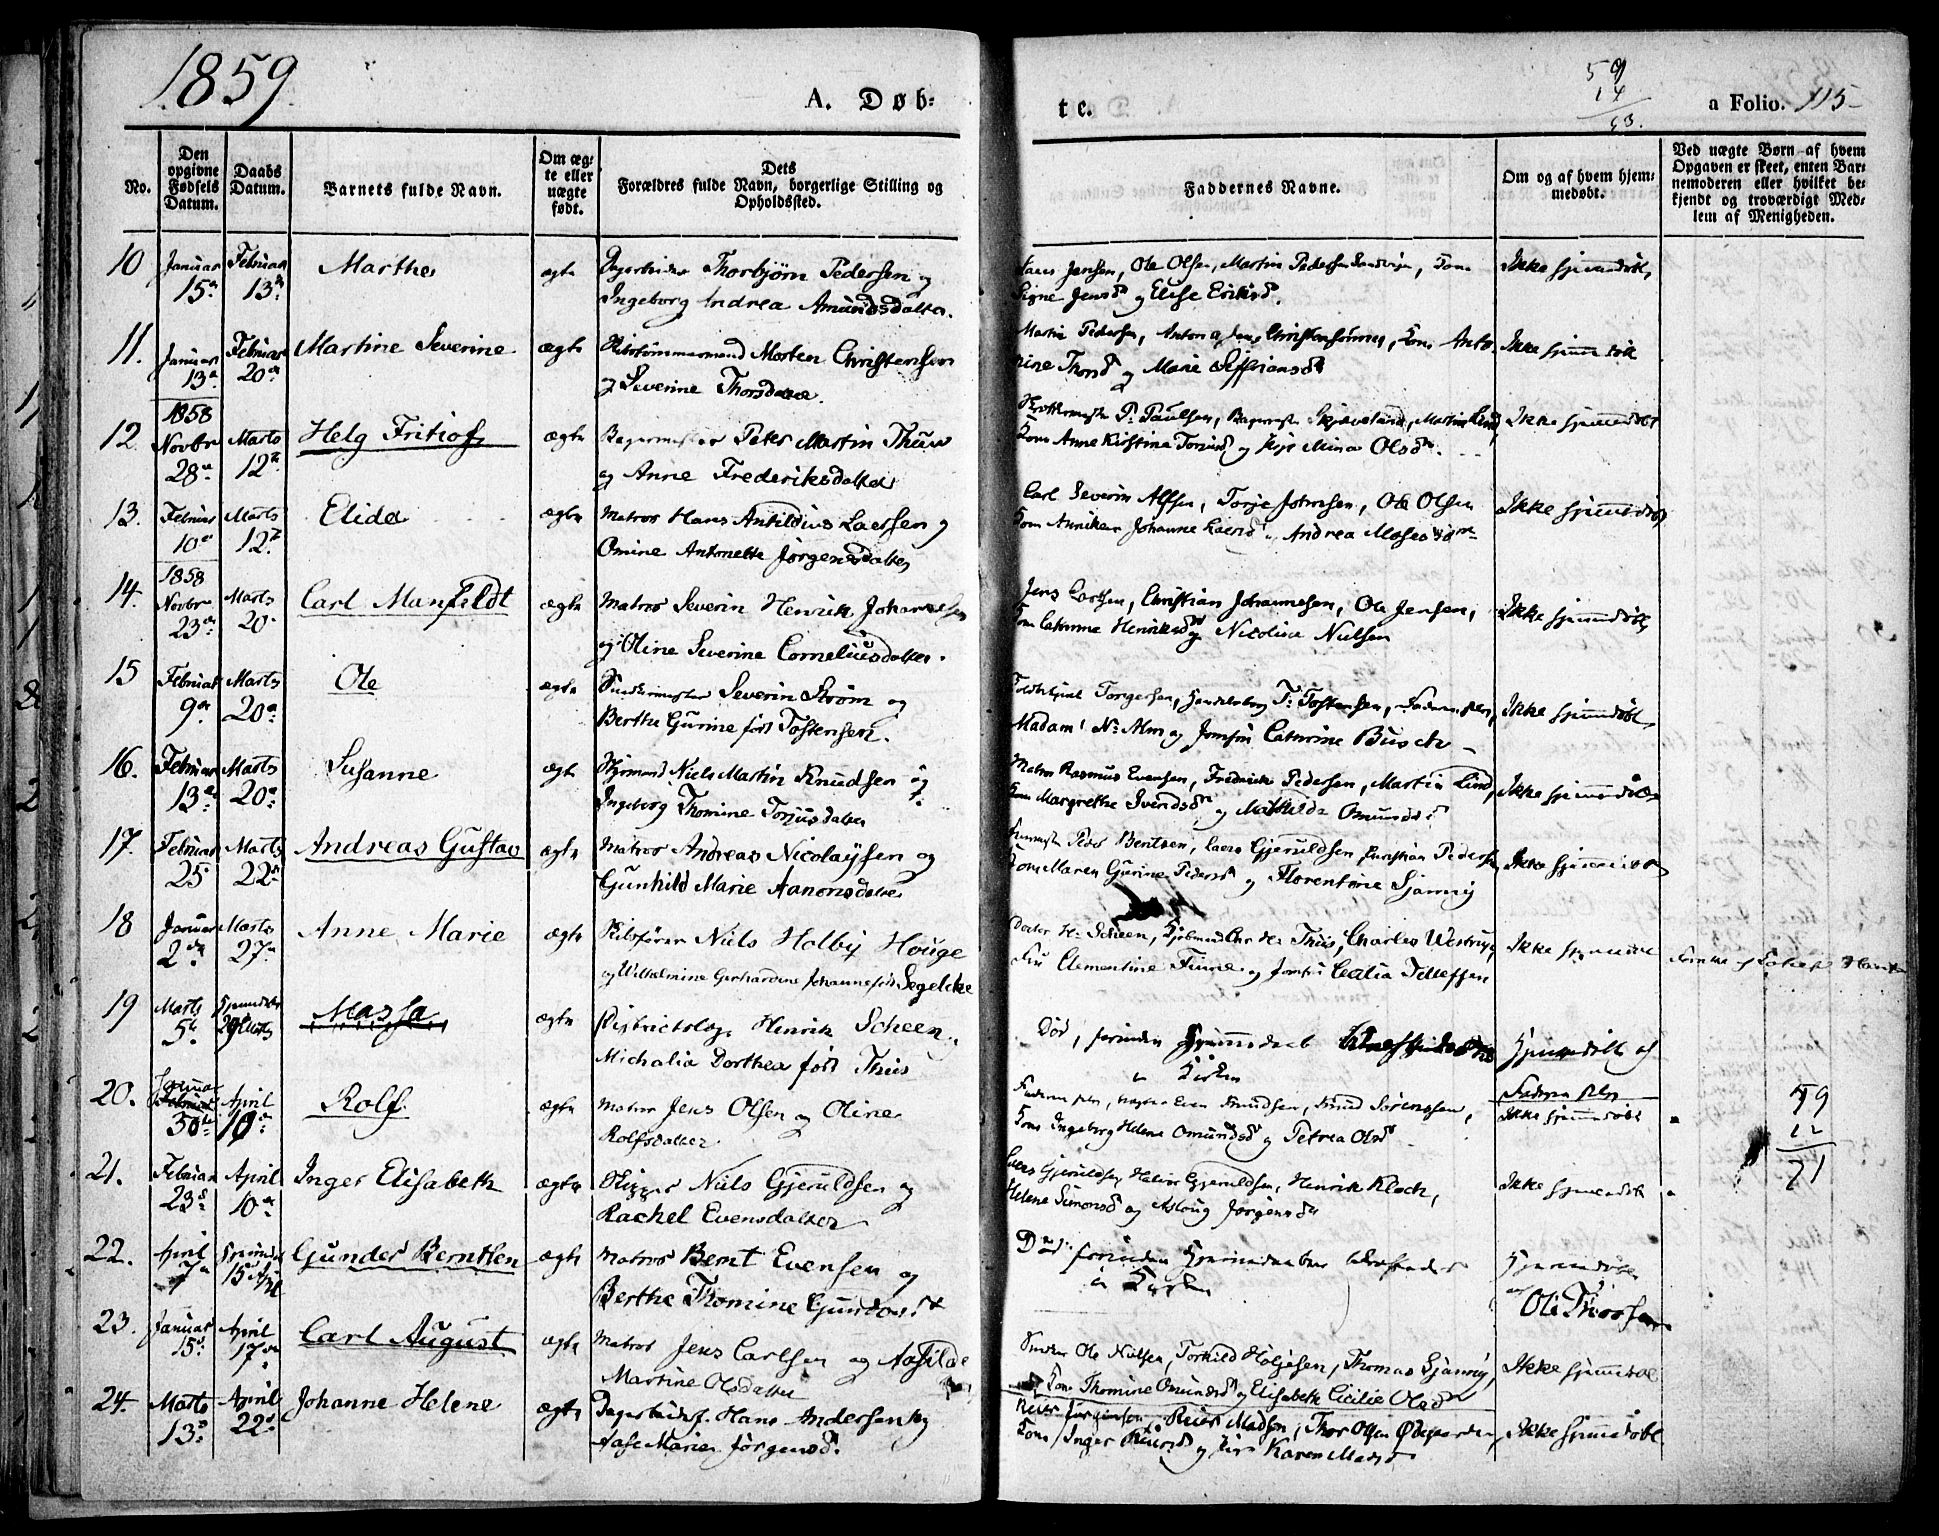 1859.
A. Døb-
te.
59
14
53.
a Folio. 115
No.
Den opgivne Fødsels Datum.
Daabs Datum.
Barnets fulde Navn.
Om ægte eller uægte født.
Dets Forældres fulde Navn, borgerlige Stilling og Opholdssted.
Faddernes Navne.
Om og af hvem hjemmedøbt.
Ved uægte Børn af hvem Opgaven er skeet, enten Barnemoderen eller hvilket bekjendt og troværdigt Medlem af Menigheden.
10 Januar 15de Februar 13de Marthe ægte Thorbjørn Pedersen og
Ingeborg Andrea Amundsdatter.
Jensen, Ole Olsen, Martin Pedersen
Signe Jensd og Elise Eriksd.
Ikke hjemmedøbt
11. Januar 13de Februar 20de Martine Severine ægte Skibstømmermand Morten Christensen
og Severine Thorsdatter.
Martin Pedersen, Anton og Jens Christensønner, Kone Anto-
nine Thorsd og Marie
Ikke hjemmedøbt
12 1858 Novbr 28de Marts 12te Helg Fritiof ægte Bagermester Peter Martin Thuv
og Anne Frederiksdatter
P. Paulsen, Bagermester Skjævesland, Martin Lind,
Kone Anne Kirstina og Mina Olsd.
Ikke hjemmedøbt
13. Februar 10de Marts 12te Elida ægte Matros Hans Antildius Larsen og
Omine Antonette Jørgensdatter
Carl Severin Alfsen, Torje Johnsen, Ole Olsen
Kone Anniken Johanne Larsd, Andrea
Ikke hjemmedøbt
14. 1858 Novbr 23de Marts 20. Carl Manfeldt ægte Matros Severin Henrik Johannesen
og Oline Severine Corneliusdatter.
Jens Larsen, Christian Johannesen, Ole Jensen,
Kone Cathrine Henriksd og Nicoline Nielsen
Ikke hjemmedøbt
15 Februar 9de Marts 20de Ole ægte Severin Strøm og
Berthe Gurine født Tostensen.
Torgersen, T. Tostensen, Faderen selv,
Madam N. Alm og Jomfru Cathrine Busch
Ikke hjemmedøbt
16. Februar 13de Marts 20de Susanne ægte Styrmand Niels Martin Knudsen og
Ingeborg Thomine Torjusdatter
Matros Rasmus Evensen, Frederik Pedersen, Martin Lind,
Kone Margrethe Svendsd og Mathilde Omundsd.
Ikke hjemmedøbt
17. Februar 25 Marts 22de Andreas Gustav ægte Matros Andreas Nicolaysen og
Gunhild Marie Aanonsdatter
Peder Bentsen, Lars Gjeruldsen, Christian Pedersen
Kone Maren Gurine Pedersd og Florentine
Ikke hjemmedøbt
18 Januar 2den Marts 27de Anne Marie ægte Skibsfører Niels Holby Houge
og Wilhelmine Gerhardine Johanne født Segelcke
Doctor H. Scheen, H. Thiis, Charles
Fru Clementine og Jomfru Cecilia Tellefsen
Ikke hjemmedøbt
19 Marts 5te Hjemmedøbt 29 Marts Massa ægte Districtslæge Henrik Scheen,
Michalia Dorthea født Thiis
Død, forinden Hjemmedaab
i Kirken
Hjemmedøbt af
Faderen selv
20. Januar 30te April 10de Rolf ægte Matros Jens Olsen og Oline
Rolfsdatter
Faderen selv, Even Knudsen, Knud Sørensen,
Kone Ingeborg Helene Omundsd og Petrea Olsd
Ikke hjemmedøbt
59
12
71
21. Februar 23de April 10de Inger Elisabeth ægte Skipper Niels Gjeruldsen og
Rachel Evensdatter
Lars Gjeruldsen, Halvor Gjeruldsen, Henrik Kloch,
Helene Simonsd og Aslaug Jørgensd
Ikke hjemmedøbt
22. April 7de Hjemmedøbt 15 April Gunder Berntsen ægte Matros Bernt Evensen og
Berthe Thomine Gundersd
Død forinden Hjemmedaaben
i Kirken
Hjemmedøbt af
Ole Thorsen
23. Januar 15de April 17de Carl August ægte Matros Jens Carlsen og
Martine Olsdatter
Ole Nielsen, Torkild Holjesen, Thomas
Kone Thomine Omundsd og Elisabeth Cicilie Olsd
Ikke hjemmedøbt
24. Marts 13de April 22de Johanne Helene ægte Dagarbeider Hans Andersen og
Aase Marie Jørgensd.
Reier Jørgensen, Reier Madsen, Thor Olsen Ødegaarden,
Kone Inger Reiersd og Karen Madsd
Ikke hjemmedøbt